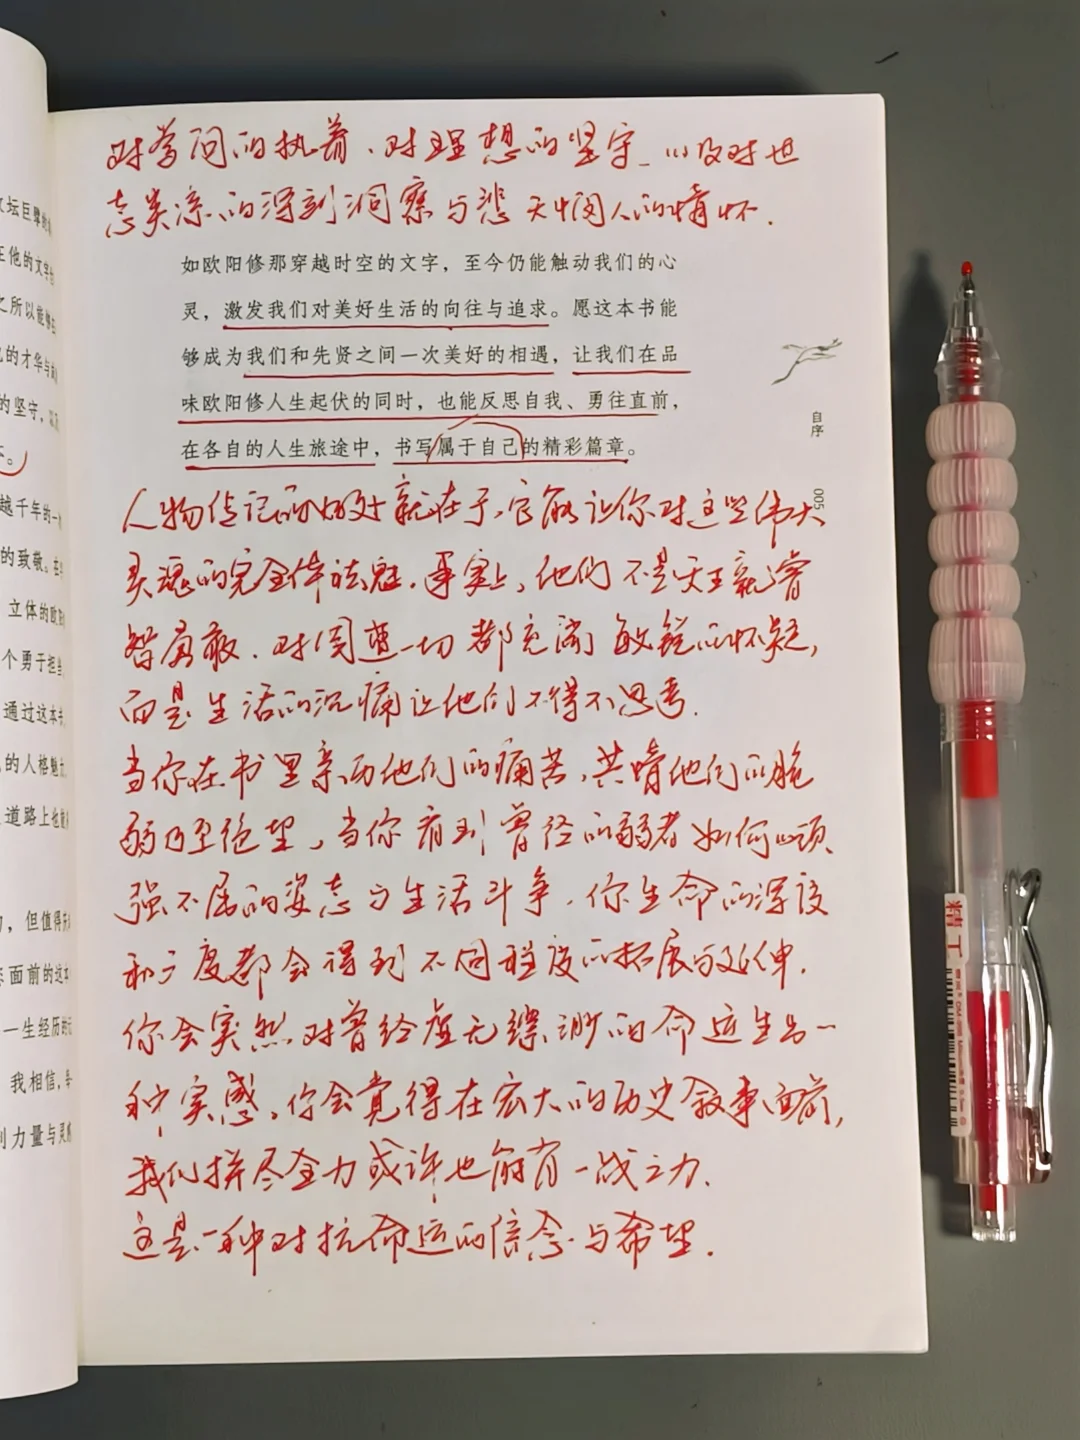 坛巨擘的
在他的文字
之所以能够
的才华与
的坚守，以
。
越千年的一
的致敬。在
立体的欧
个勇于担当
通过这本
的人格魅
道路上也能
，但值得
面前的这本
一生经历的
我相信，
力量与灵
对学问的执着、对理想的坚守、以及对世
态炎凉的深刻洞察与悲天悯人的情怀.
如欧阳修那穿越时空的文字，至今仍能触动我们的心
灵，激发我们对美好生活的向往与追求。愿这本书能
够成为我们和先贤之间一次美好的相遇，让我们在品
味欧阳修人生起伏的同时，也能反思自我、勇往直前，
在各自的人生旅途中，书写属于自己的精彩篇章。
自序
005
人物传记的好处就在于，它能让你对这些伟大
灵魂的完全体祛魅.事实上，他们不是天生就睿
智勇敢.对周遭一切都充满敏锐的怀疑，
而是生活的沉痛让他们不得不思考.
当你在书里亲历他们的痛苦，共情他们的脆
弱乃至绝望，当你看到曾经的弱者如何以顽
强不屈的姿态与生活斗争.你生命的深度
和广度都会得到不同程度的拓展与延伸.
你会突然对曾经虚无缥渺的命运生出一
种实感，你会觉得在宏大的历史叙事面前，
我们拼尽全力或许也能有一战之力.
这是一种对抗命运的信念与希望.
精工